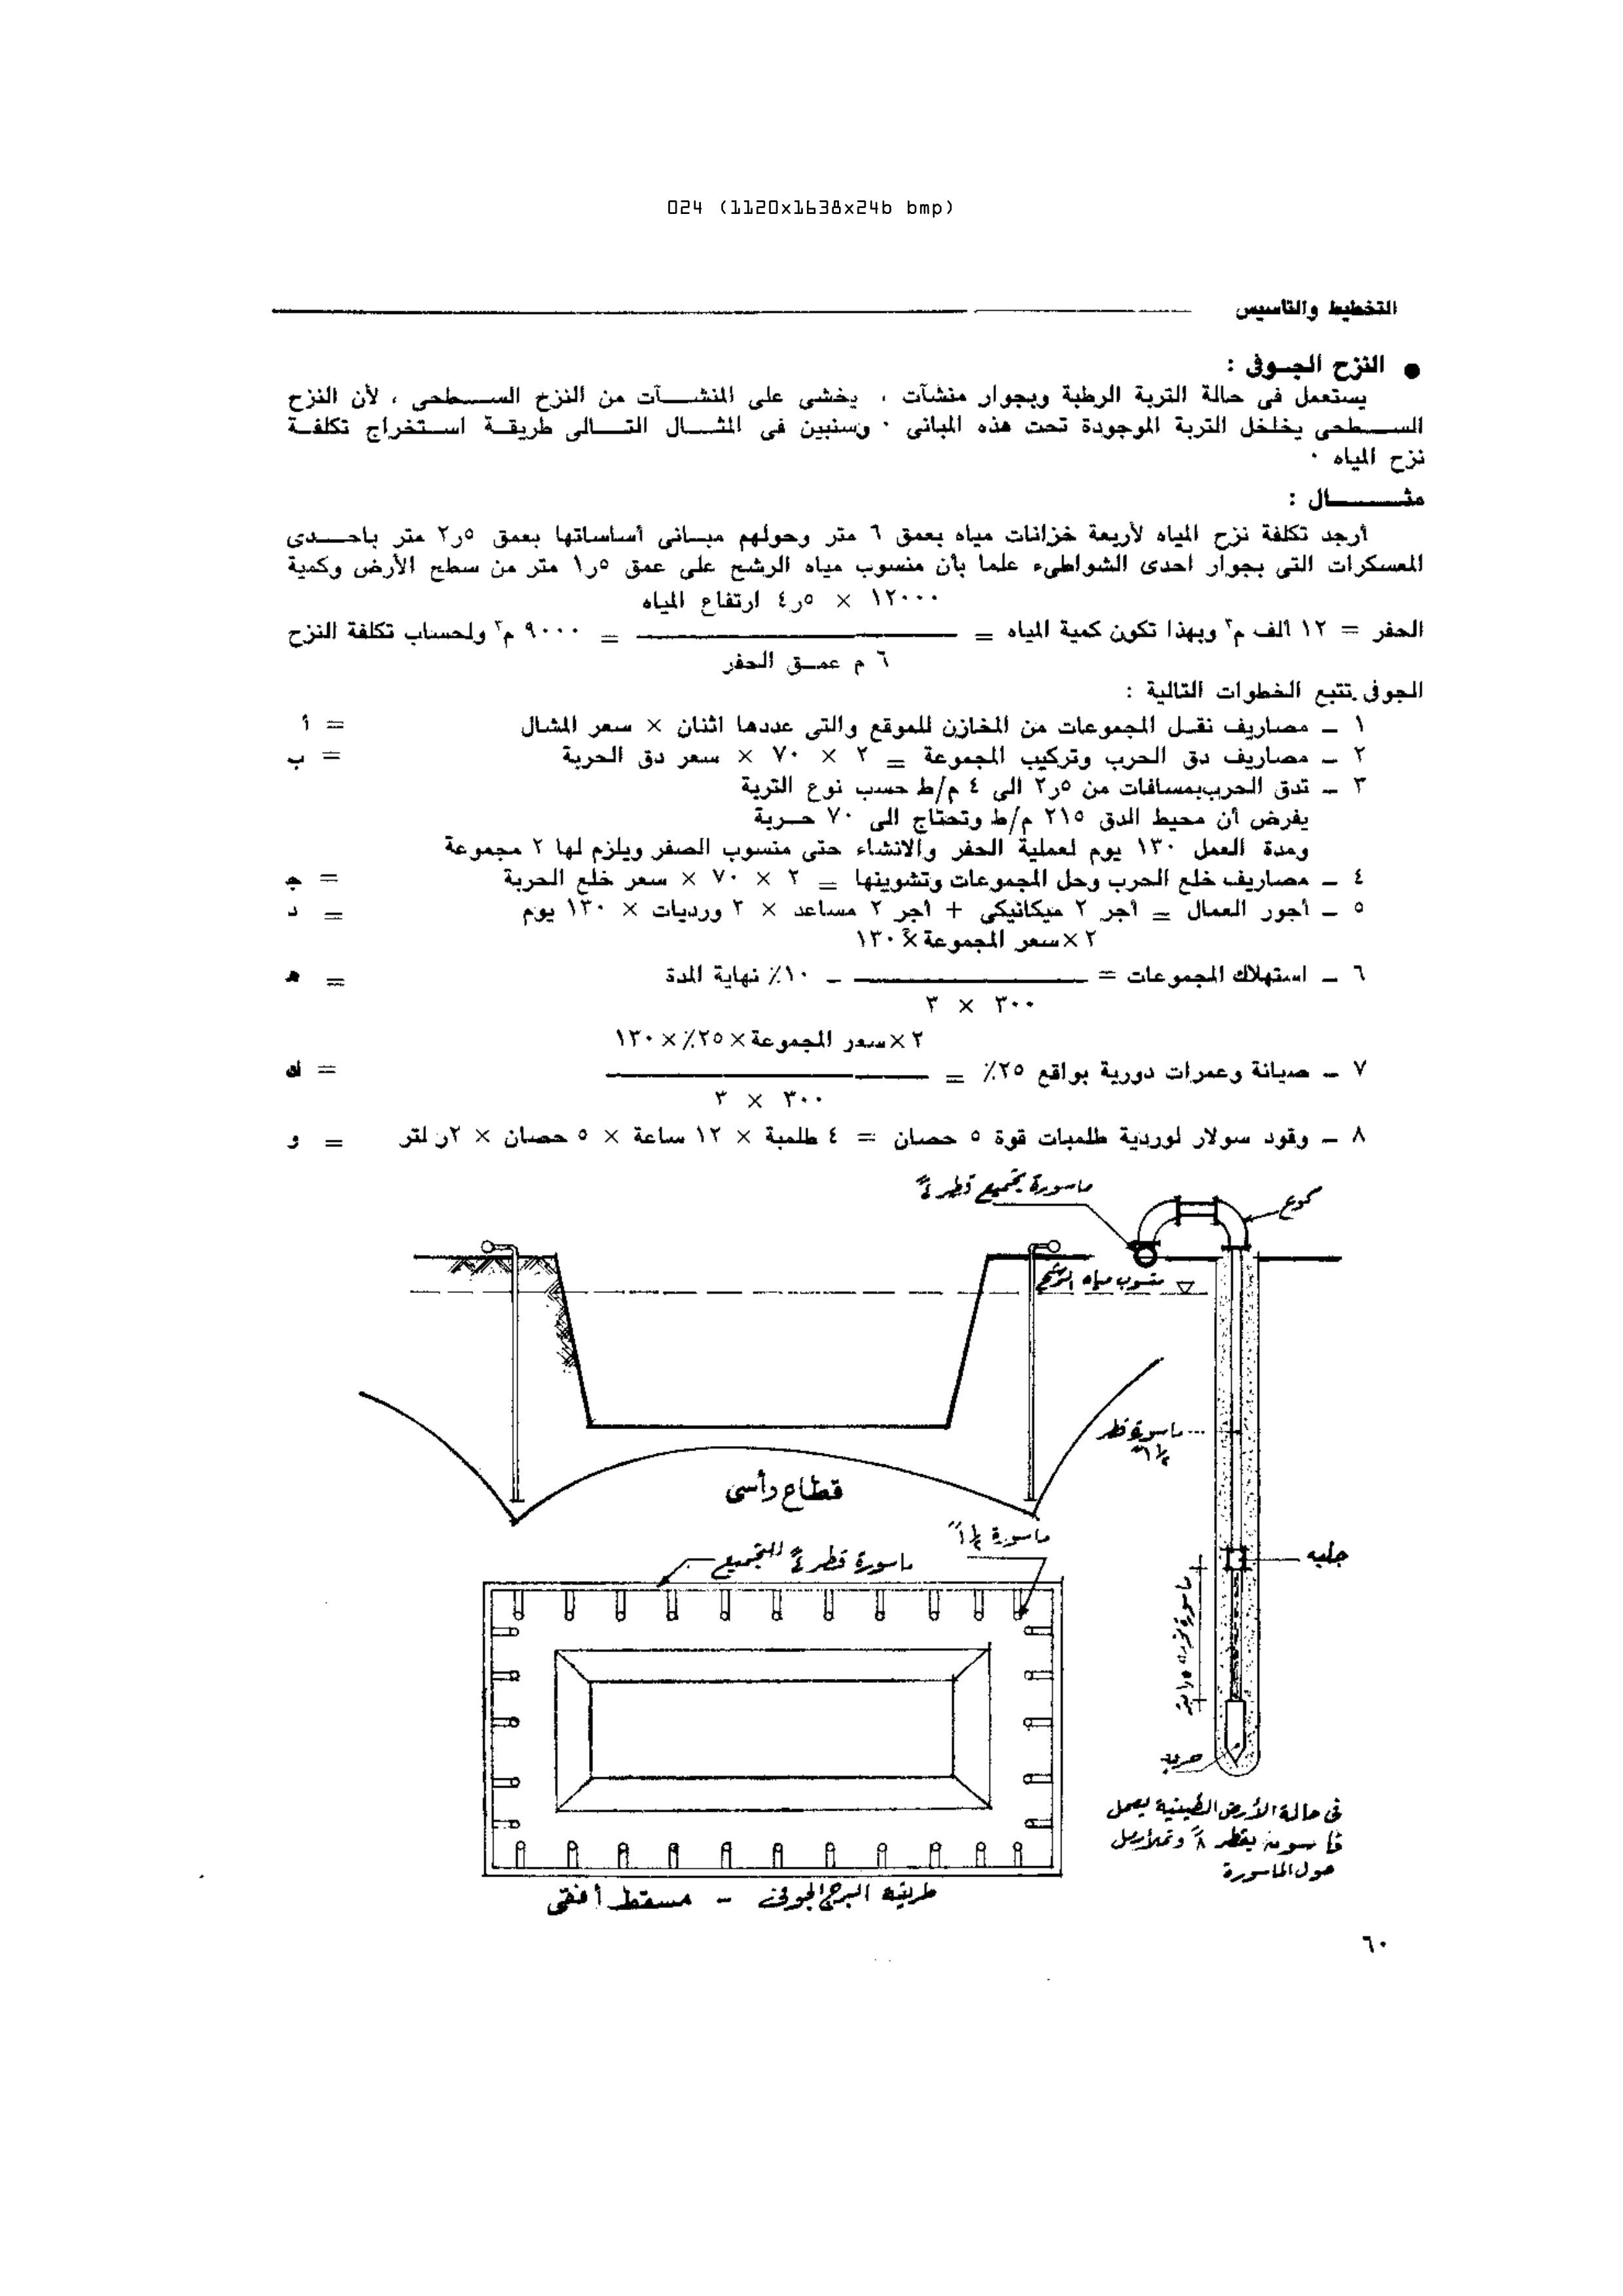 024 (1120x1638x24b bmp)
التخطيط والتأسيس
● النزح الجوفى :
يستعمل فى حالة التربة الرطبة وبجوار منشآت ، يخشى على المنشآت من النزح السطحى ، لأن النزح
السطحى يخلخل التربة الموجودة تحت هذه المبانى ٠ وسنبين فى المثال التالى طريقة استخراج تكلفة
نزح المياه ٠
مثال :
أرجد تكلفة نزح المياه لأربعة خزانات مياه بعمق ٦ متر وحولهم مبانى أساساتها بعمق ٢٫٥ متر باحدى
المعسكرات التى بجوار احدى الشواطىء علما بأن منسوب مياه الرشح على عمق ١٫٥ متر من سطح الأرض وكمية
١٢٠٠٠ × ٤٫٥ ارتفاع المياه
الحفر = ١٢ ألف م٣ وبهذا تكون كمية المياه = ــــــــ = ٩٠٠٠ م٣ ولحساب تكلفة النزح
٦ م عمق الحفر
الجوفى تتبع الخطوات التالية :
١ ـ مصاريف نقل المجموعات من المخازن للموقع والتى عددها اثنان × سعر المشال = أ
٢ ـ مصاريف دق الحرب وتركيب المجموعة = ٢ × ٧٠ × سعر دق الحربة = ب
٣ ـ تدق الحرب بمسافات من ٢٫٥ الى ٤ م/ط حسب نوع التربة
يفرض أن محيط الدق ٢١٥ م/ط وتحتاج الى ٧٠ حربة
ومدة العمل ١٣٠ يوم لعملية الحفر والانشاء حتى منسوب الصفر ويلزم لها ٢ مجموعة
٤ ـ مصاريف خلع الحرب وحل المجموعات وتشوينها = ٢ × ٧٠ × سعر خلع الحربة = ج
٥ ـ أجور العمال = أجر ٢ ميكانيكى + أجر ٢ مساعد × ٢ ورديات × ١٣٠ يوم = د
٢ × سعر المجموعة × ١٣٠
٦ ـ استهلاك المجموعات = ــــــــ ـ ١٠٪ نهاية المدة = هـ
٣٠٠ × ٣
٢ × سعر المجموعة × ٢٥٪ × ١٣٠
٧ ـ صيانة وعمرات دورية بواقع ٢٥٪ = ــــــــ = ك
٣٠٠ × ٣
٨ ـ وقود سولار لوردية طلمبات قوة ٥ حصان = ٤ طلمبة × ١٢ ساعة × ٥ حصان × ٢ر لتر = و
ماسورة تجميع قطر ٤"
كوع
منسوب مياه الرشح
ماسورة قطر
١½"
قطاع رأسى
ماسورة ١½"
ماسورة قطر ٤" للتجميع
جلبه
ماسورة
حربه
فى حالة الأرض الطينية يعمل
بقطر ٨"
حول الماسورة
طريقة النزح الجوفى - مسقط أفقى
٦٠